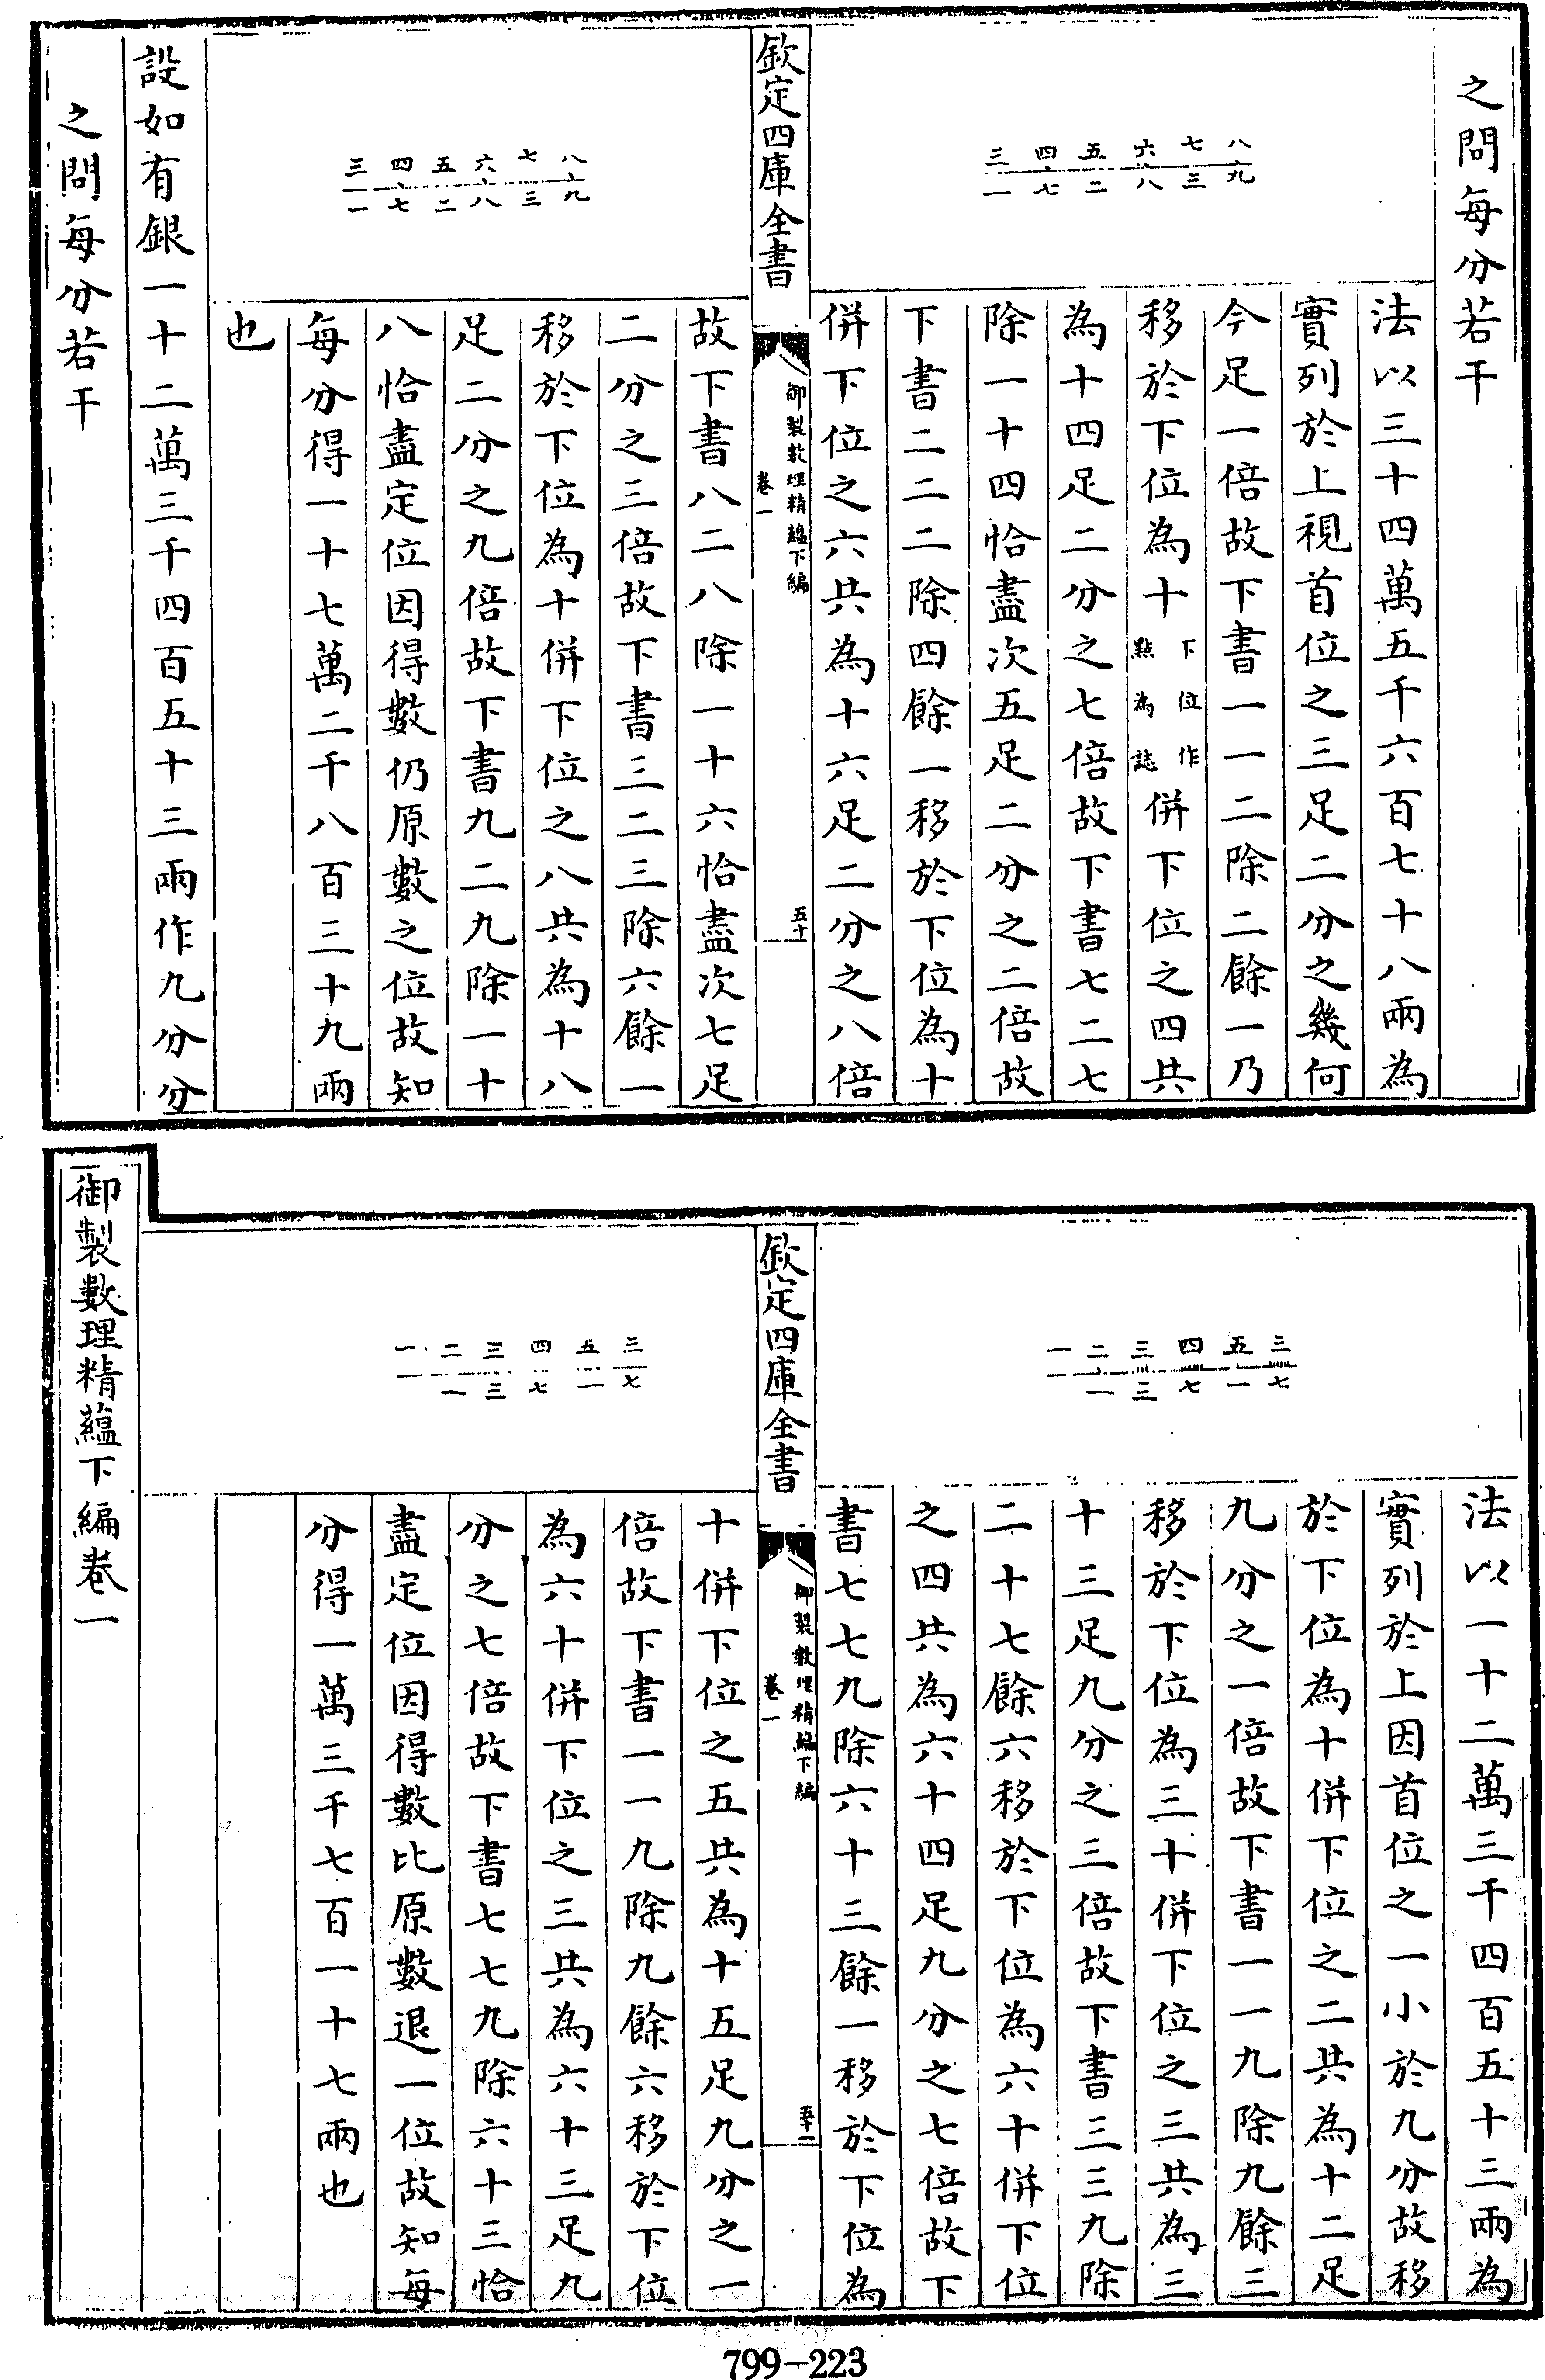 之問每分若干
三四五六七八
一七二八三九
法以三十四萬五千六百七十八兩為
實列於上視首位之三足二分之幾何
今足一倍故下書一一二除二餘一乃
移於下位為十下位作點為誌併下位之四共
為十四足二分之七倍故下書七二七
除一十四恰盡次五足二分之二倍故
下書二二二除四餘一移於下位為十
併下位之六共為十六足二分之八倍
欽定四庫全書
御製數理精蘊下編
卷一
五十
三四五六七八
一七二八三九
故下書八二八除一十六恰盡次七足
二分之三倍故下書三二三除六餘一
移於下位為十併下位之八共為十八
足二分之九倍故下書九二九除一十
八恰盡定位因得數仍原數之位故知
每分得一十七萬二千八百三十九兩
也
設如有銀一十二萬三千四百五十三兩作九分分
之問每分若干
一二三四五三
一三七一七
法以一十二萬三千四百五十三兩為
實列於上因首位之一小於九分故移
於下位為十併下位之二共為十二足
九分之一倍故下書一一九除九餘三
移於下位為三十併下位之三共為三
十三足九分之三倍故下書三三九除
二十七餘六移於下位為六十併下位
之四共為六十四足九分之七倍故下
書七七九除六十三餘一移於下位為
欽定四庫全書
御製數理精蘊下編
卷一
五十一
一二三四五三
一三七一七
十併下位之五共為十五足九分之一
倍故下書一一九除九餘六移於下位
為六十併下位之三共為六十三足九
分之七倍故下書七七九除六十三恰
盡定位因得數比原數退一位故知每
分得一萬三千七百一十七兩也
御製數理精蘊下編卷一
799-223